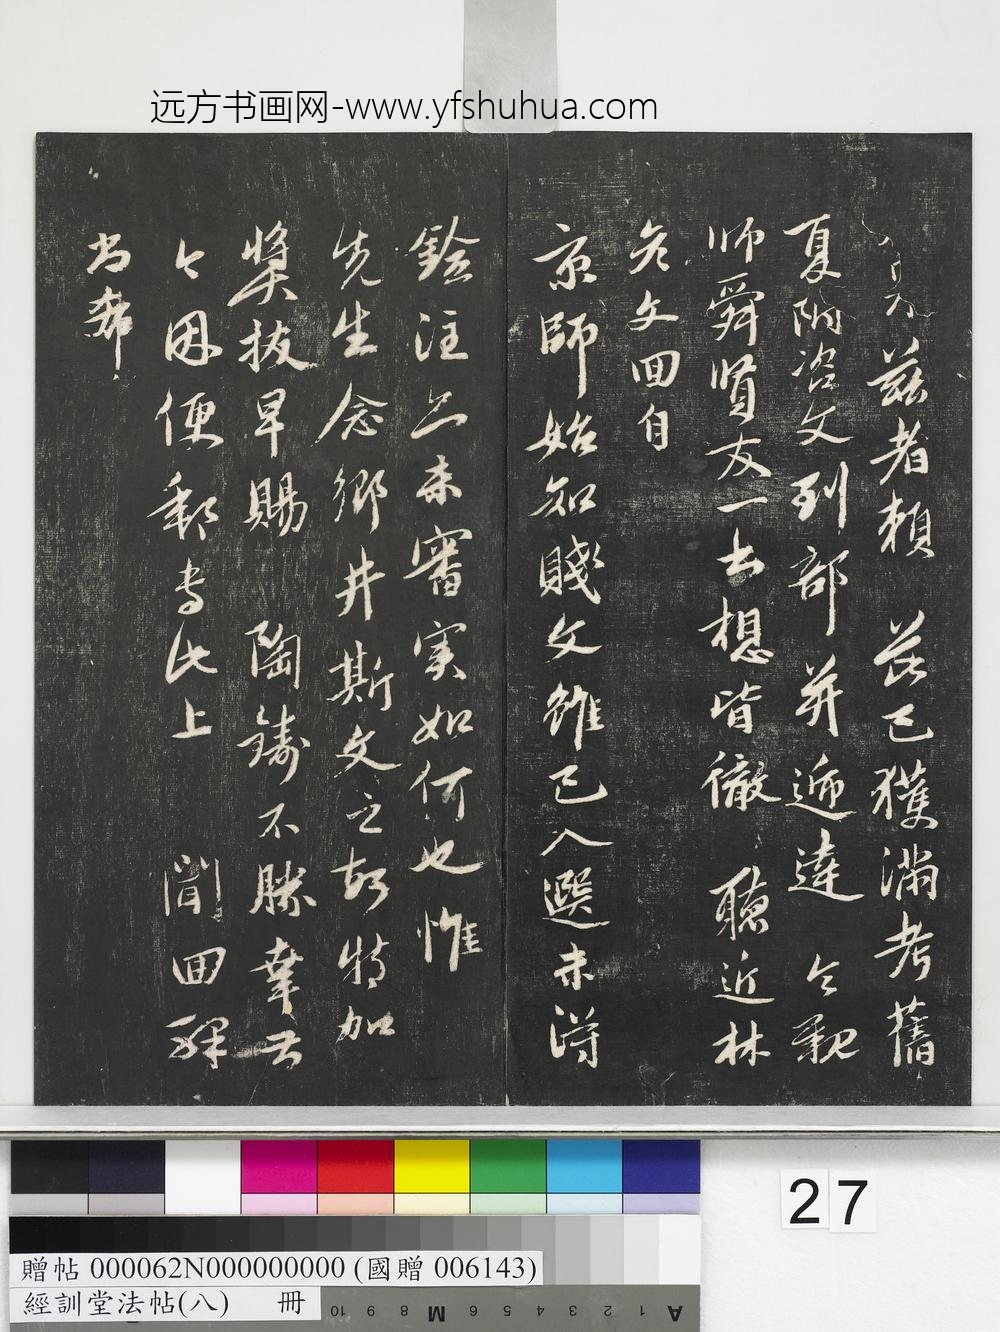 远方书画网-www.yfshuhua.com
茲者賴 茲已獲滿考舊
夏附咨文到部 并逓達 今親
師舜賢友一去想皆徹 聽近林
先文回自
京師始知賤文雖已入選未得
銓注亦未審實如何也 惟
先生念鄉井斯文之故特加
獎拔早賜 陶鑄不勝幸甚
今因便郵專此上 聞回驛
尚希
27
贈帖 000062N000000000 (國贈 006143)
經訓堂法帖(八) 冊
10 9 8 M 6 5 4 3 2 1 A